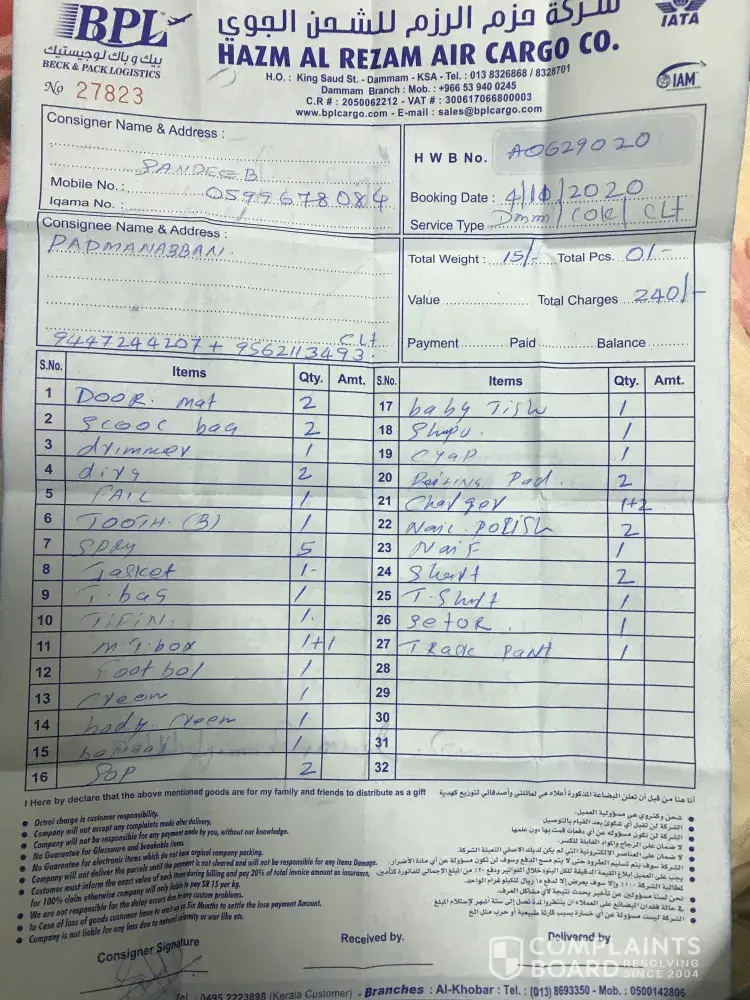 BPL
بيك و باك لوجيستيك
BECK & PACK LOGISTICS
No 27823
شركة حزم الرزم للشحن الجوي
HAZM AL REZAM AIR CARGO CO.
H.O. : King Saud St. - Dammam - KSA - Tel. : 013 8326868 / 8328701
Dammam Branch : Mob. : +966 53 940 0245
C.R # : 2050062212 - VAT # : 300617066800003
www.bplcargo.com - E-mail : sales@bplcargo.com
IATA
IAM
Consigner Name & Address :
SANDEEB
Mobile No. : 0599678084
Iqama No. :
H W B No. A0629020
Booking Date : 4/10/2020
Service Type Dmm / COK / CLT
Consignee Name & Address :
PADMANABBAN.
CLT
9447244207 + 9562113493.
Total Weight : 15/- Total Pcs. 01-
Value Total Charges 240/-
Payment Paid Balance
S.No. Items Qty. Amt.
1 DOOR. mat 2
2 SCOOL bag 2
3 drimmer 1
4 2
5 PAIL 1
6 TOOTH. (B) 1
7 SPRY 5
8 Jasket 1-
9 T. bag 1
10 TIFIN. 1.
11 m T. box 1+1
12 Foot bol 1
13 creem 1
14 body creem 1
15 1
16 POP 2
S.No. Items Qty. Amt.
17 baby Tish 1
18 Shapu. 1
19 1
20 Pad. 2
21 Charger 1+2
22 Nail. POLISH 2
23 Naif 1
24 Shart 2
25 T. Shift 1
26 setor. 1
27 Track pant 1
28
29
30
31
32
I Here by declare that the above mentioned goods are for my family and friends to distribute as a gift
أنا هنا من قبل أن تعلن البضاعة المذكورة أعلاه هي لعائلتي وأصدقائي لتوزيع كهدية
• Octroi charge is customer responsibility.
• Company will not accept any complaints made after delivery.
• Company will not be responsible for any payment made by you, without our knowledge.
• No Guarantee for Glassware and breakable items.
• No Guarantee for electronic items which do not have original company packing.
• Company will not deliver the parcels until the payment is not cleared and will not be responsible for any items Damage.
• Customer must inform the exact value of each items during billing and pay 20% of total invoice amount as insurance,
for 100% claim otherwise company will only liable to pay SR 15 per kg.
• We are not responsible for the delay occurs due to any custom problems.
• In Case of loss of goods customer have to wait up to Six Months to settle the loss payment Amount.
• Company is not liable for any loss due to natural calamity or war like etc.
Consigner Signature
Received by.
Delivered by.
Tel : 0495 2223898 (Kerala Customer) - Branches : Al-Khobar : Tel. : (013) 8693350 - Mob. : 0500142806
COMPLAINTS
BOARD RESOLVING
SINCE 2004